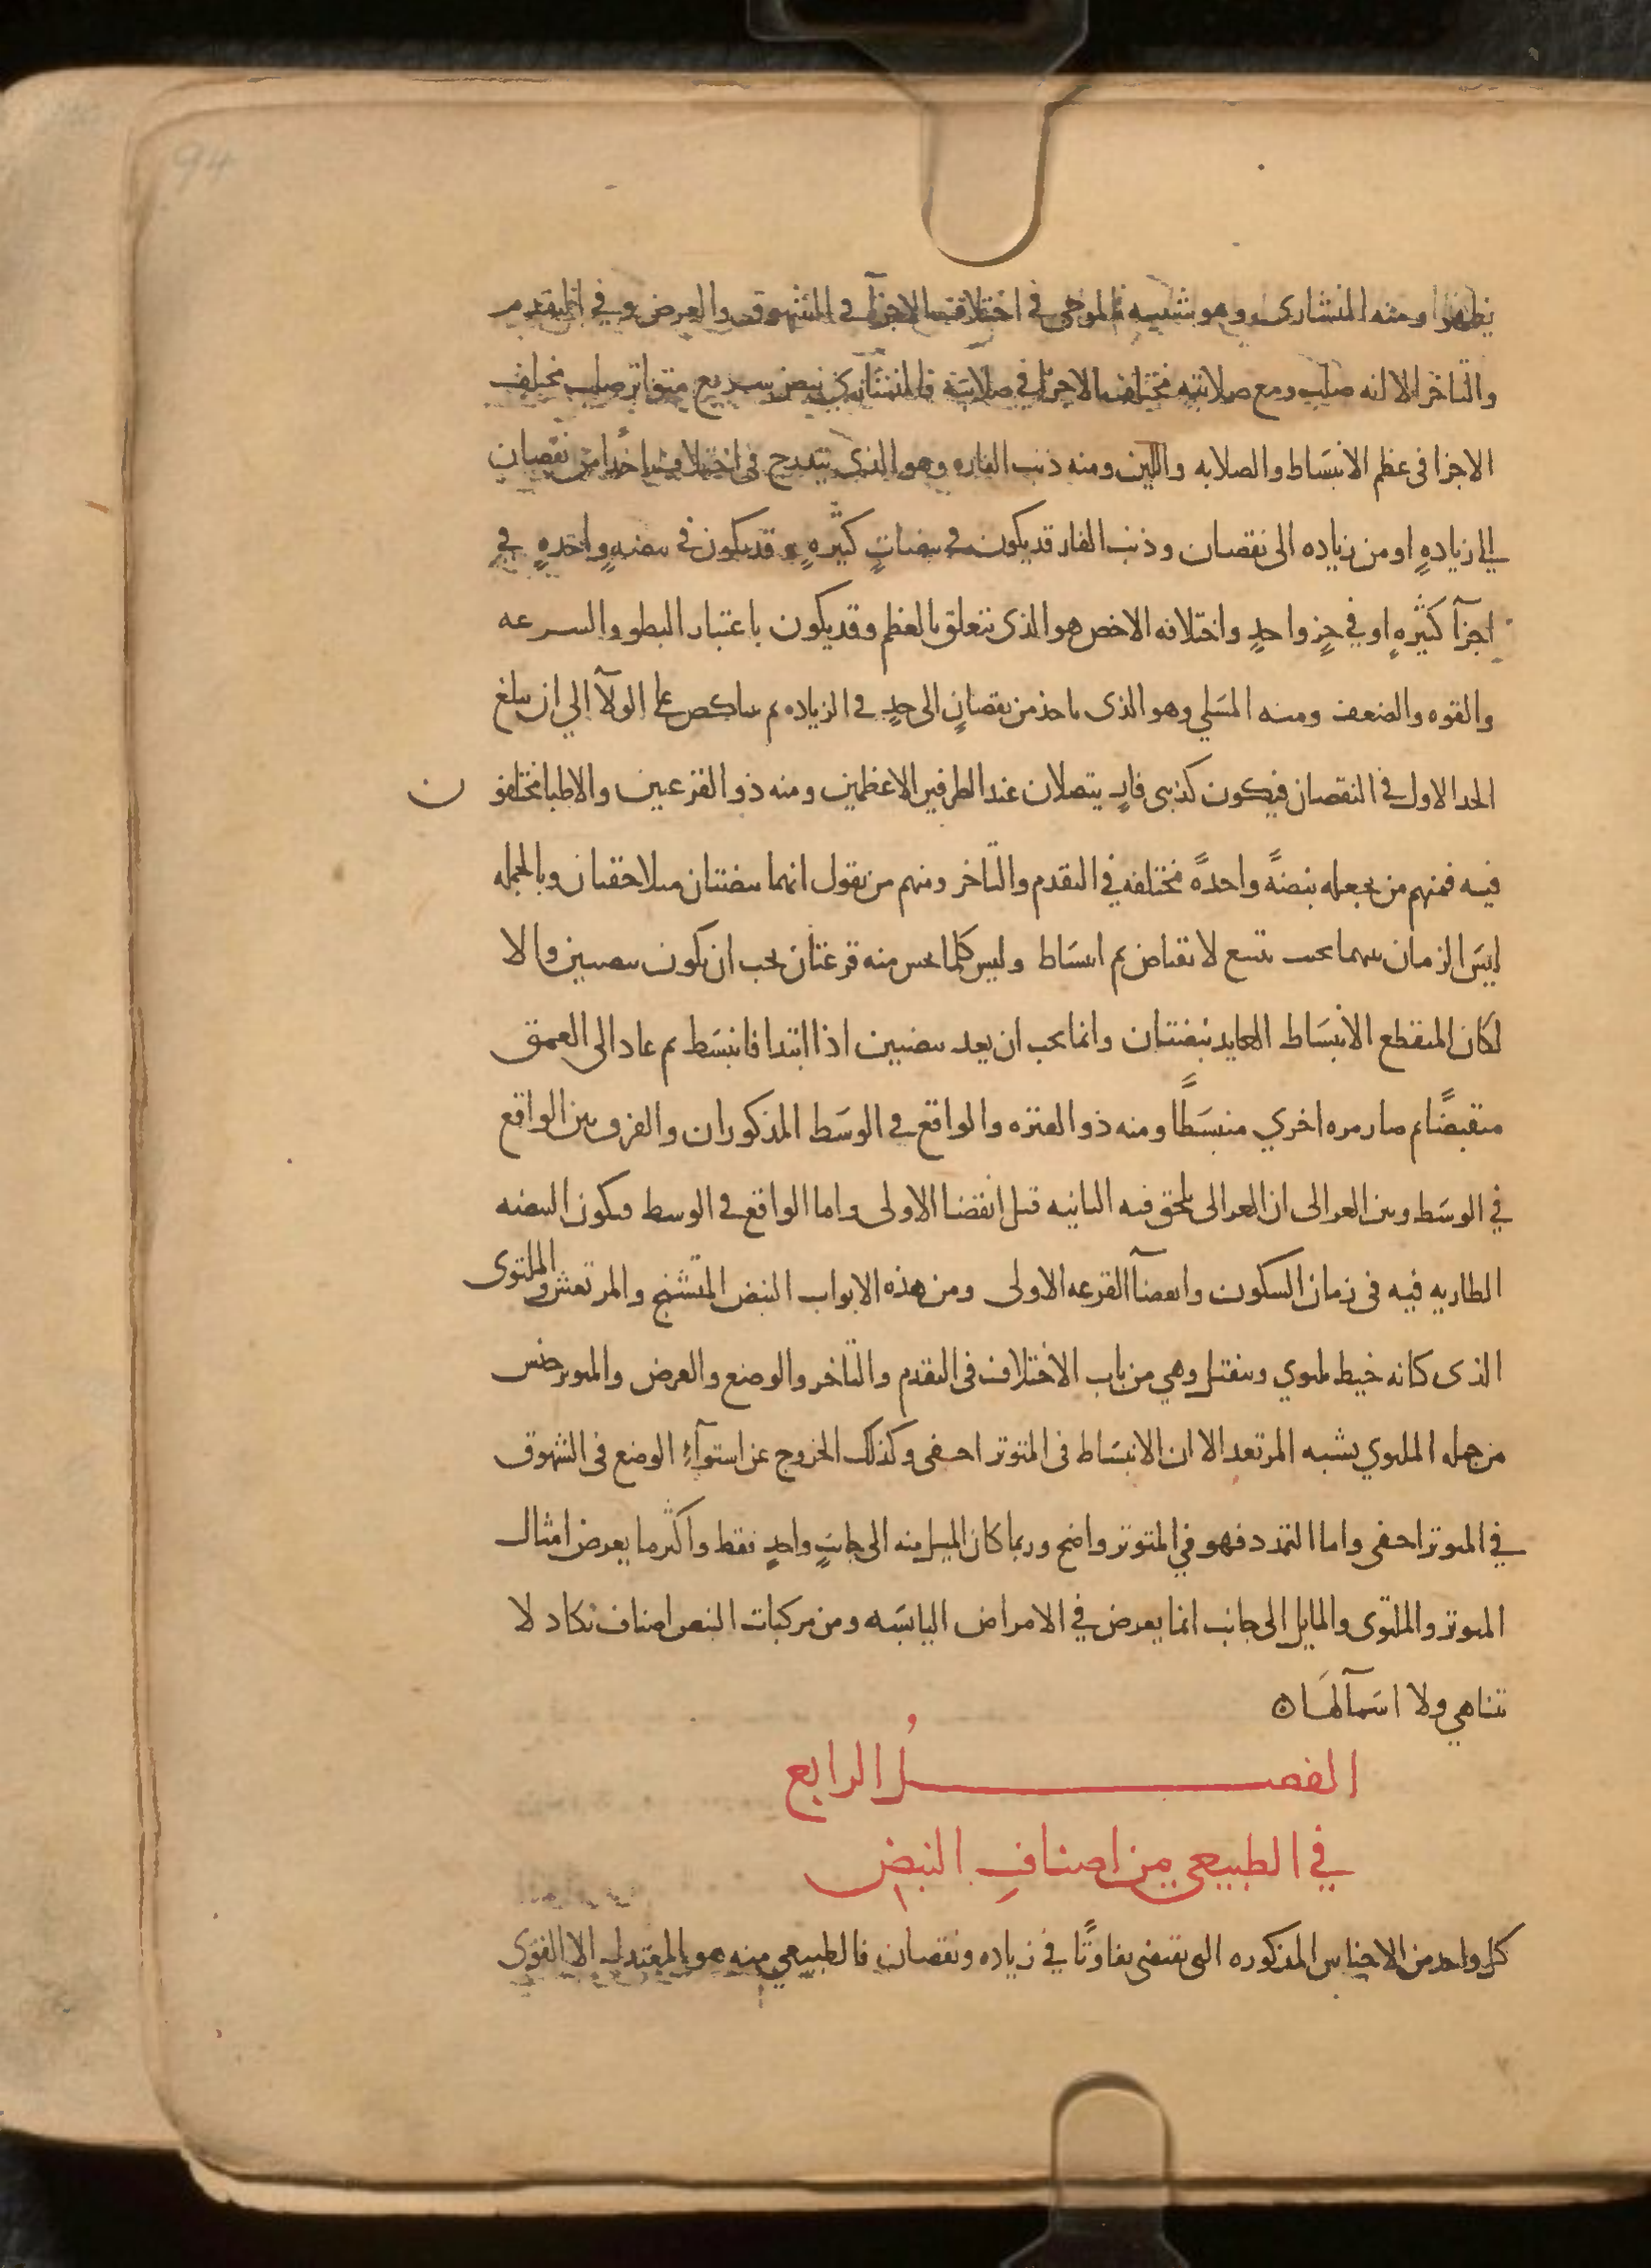 94
يظهر ومنه المنشارى وهو شبيه بالموجى فى اختلاف الاجزآ فى الشهوق والعرض وفى التقدم
والتاخر الا انه صلب ومع صلابته مختلف الاجزا فى صلابته فالمنشارى نبض سريع متواتر صلب مختلف
الاجزا فى عظم الانبساط والصلابه واللين ومنه ذنب الفاره وهو الذى يتدرج فى اختلاف اجزا من نقصان
الى زيادهٍ او من زياده الى نقصان وذنب الفار قد يكون فى نبضاتٍ كثيرهٍ وقد يكون فى نبضهٍ واحدهٍ فى
اجزآ كثيرهٍ او فى جزٍ واحدٍ واختلافه الاخص هو الذى يتعلق بالعظم وقد يكون باعتبار البطو والسرعه
والقوه والضعف ومنه المسلي وهو الذى ياخذ من نقصانٍ الى حدٍ فى الزياده ثم يناكص على الولآ الي ان يبلغ
الحد الاول فى النقصان فيكون كذنبى فارٍ يتصلان عند الطرفين الاعظمين ومنه ذو القرعين والاطبا مختلفو
ن
فيه فمنهم من يجعله نبضهً واحدهً مختلفه فى التقدم والتاخر ومنهم من يقول انهما نبضتان متلاحقتان وبالجمله
ليس الزمان بينهما بحيث يتسع لانقباض ثم انبساط وليس كلما يحس منه قرعتان يجب ان يكون نبضتين والا
لكان المنقطع الانبساط العايد نبضتان وانما يجب ان يعد نبضتين اذا ابتدا فانبسط ثم عاد الى العمق
منقبضًا ثم صار مره اخري منبسطًا ومنه ذو الفتره والواقع فى الوسط المذكوران والفرق بين الواقع
فى الوسط وبين الغزالى ان الغزالى يلحق فيه الثانيه قبل انقضا الاولى واما الواقع فى الوسط فيكون النبضه
الطاريه فيه فى زمان السكون وانقضآ القرعه الاولى ومن هذه الابواب النبض المتشنج والمرتعش والملتوى
الذى كانه خيط يلتوي وينفتل وهى من باب الاختلاف فى التقدم والتاخر والوضع والعرض والمتوتر جنس
من جمله الملتوي يشبه المرتعد الا ان الانبساط فى المتوتر اخفى وكذلك الخروج عن استوآءِ الوضع فى الشهوق
فى المتوتر اخفى واما التمدد فهو فى المتوتر واضح وربما كان الميل منه الى جانبٍ واحدٍ فقط واكثر ما يعرض امثال
المتوتر والملتوى والمايل الى جانب انما يعرض فى الامراض اليابسه ومن مركبات النبض اصناف تكاد لا
تتناهي ولا اسمآ لها
الفصــل الرابع
في الطبيعي من اصنافِ النبض
كل واحد من الاجناس المذكوره التى تقتضى تفاوتًا فى زياده ونقصان فالطبيعي منه هو المعتدل الا القوى